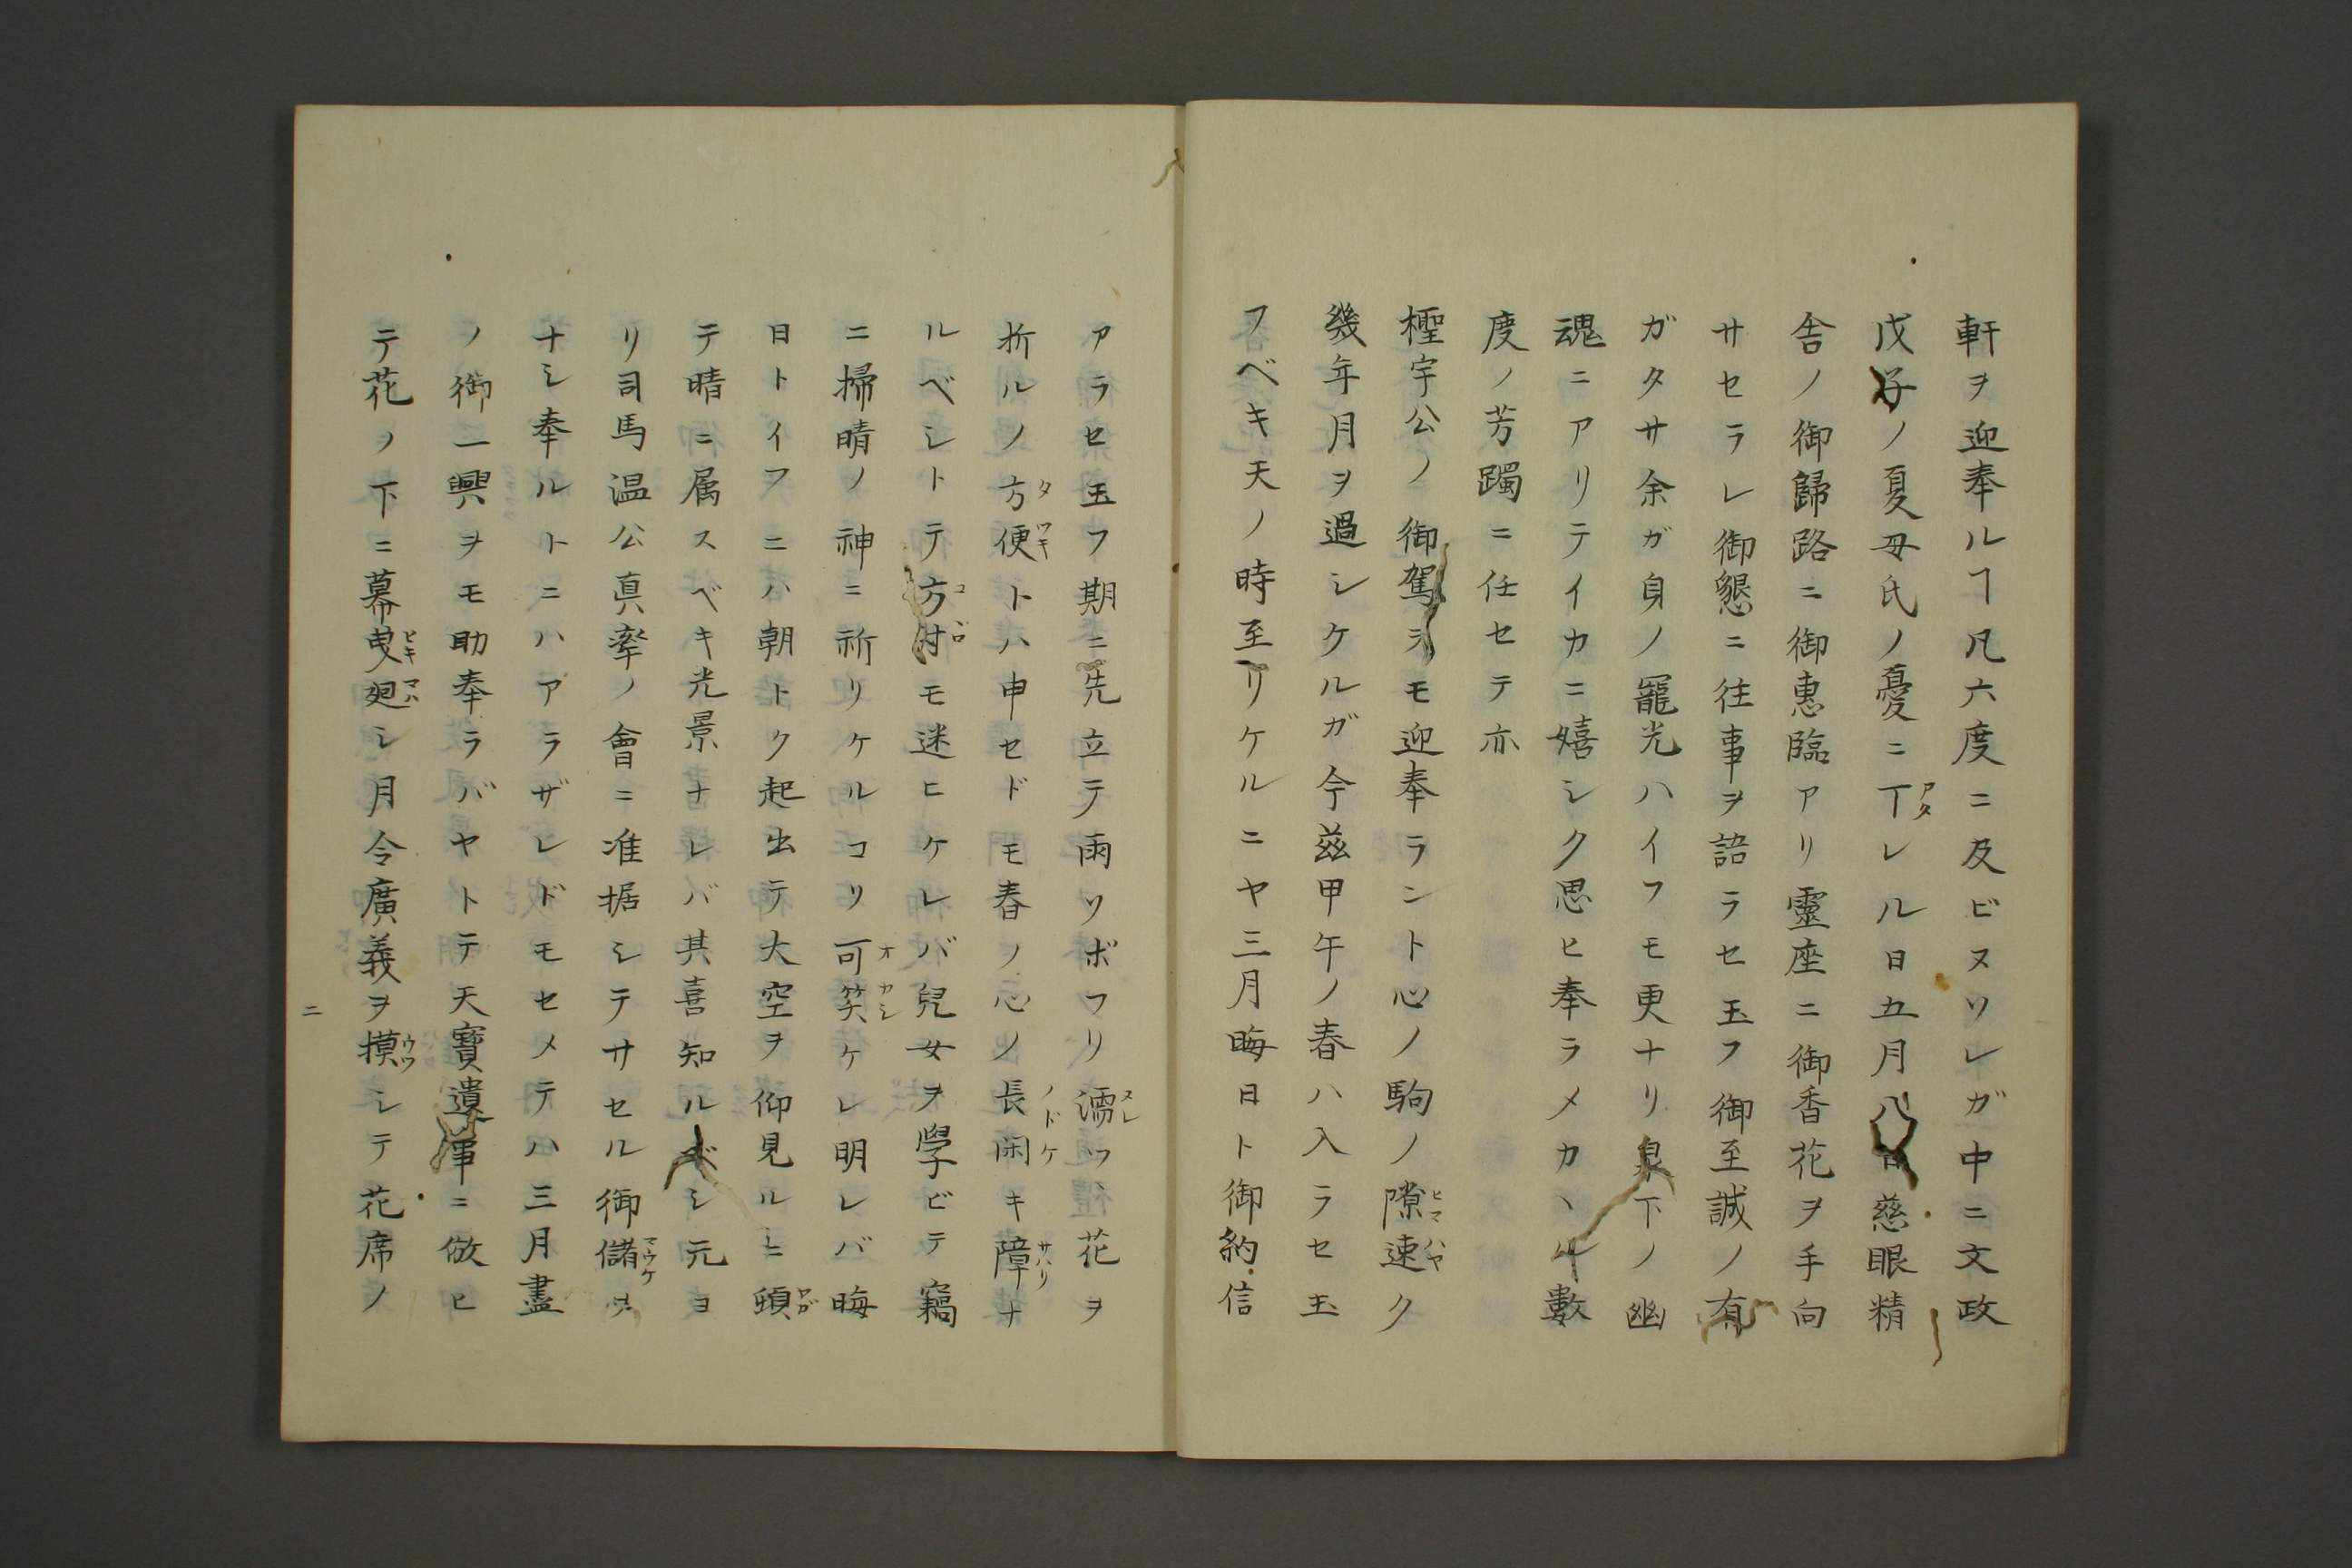 軒ヲ迎奉ルヿ凡六度ニ及ビヌソレガ中ニ文政
戊子ノ夏母氏ノ憂ニ丁レル日五月八日慈眼精
アタ
舎ノ御歸路ニ御惠臨アリ靈座ニ御香花ヲ手向
サセラレ御懇ニ往事ヲ語ラセ玉フ御至誠ノ有
ガタサ余ガ身ノ寵光ハイフモ更ナリ泉下ノ幽
魂ニアリテイカニ嬉シク思ヒ奉ラメカヽル數
度ノ芳躅ニ任セテ亦
檉宇公ノ御駕ヲモ迎奉ラント心ノ駒ノ隙速ク
ヒマハヤ
幾年月ヲ過シケルガ今茲甲午ノ春ハ入ラセ玉
フベキ天ノ時至リケルニヤ三月晦日ト御約信
アラセ玉フ期ニ先立テ雨ソボフリ濡ツヽ花ヲ
ヌレ
折ルノ方便トハ申セドモ春ノ心ノ長閑キ障ナ
タツキ
ノドケ
サハリ
ルベシトテ方寸モ迷ヒケレバ兒女ヲ學ビテ竊
コヽロ
ニ掃晴ノ神ニ祈リケルコソ可笑ケレ明レバ晦
オカシ
日トイフニハ朝トク起出テ大空ヲ仰見ルニ頭
テ晴ニ属スベキ光景ナレバ其喜知ルベシ元ヨ
リ司馬温公真率ノ會ニ准据シテサセル御儲ヲ
マウケ
ナシ奉ルトニハアラザレドモセメテハ三月盡
ノ御一興ヲモ助奉ラバヤトテ天寶遺事ニ倣ヒ
テ花ノ下ニ幕曳廻シ月令廣義ヲ摸シテ花席ノ
ヒキマハ
ウツ
二